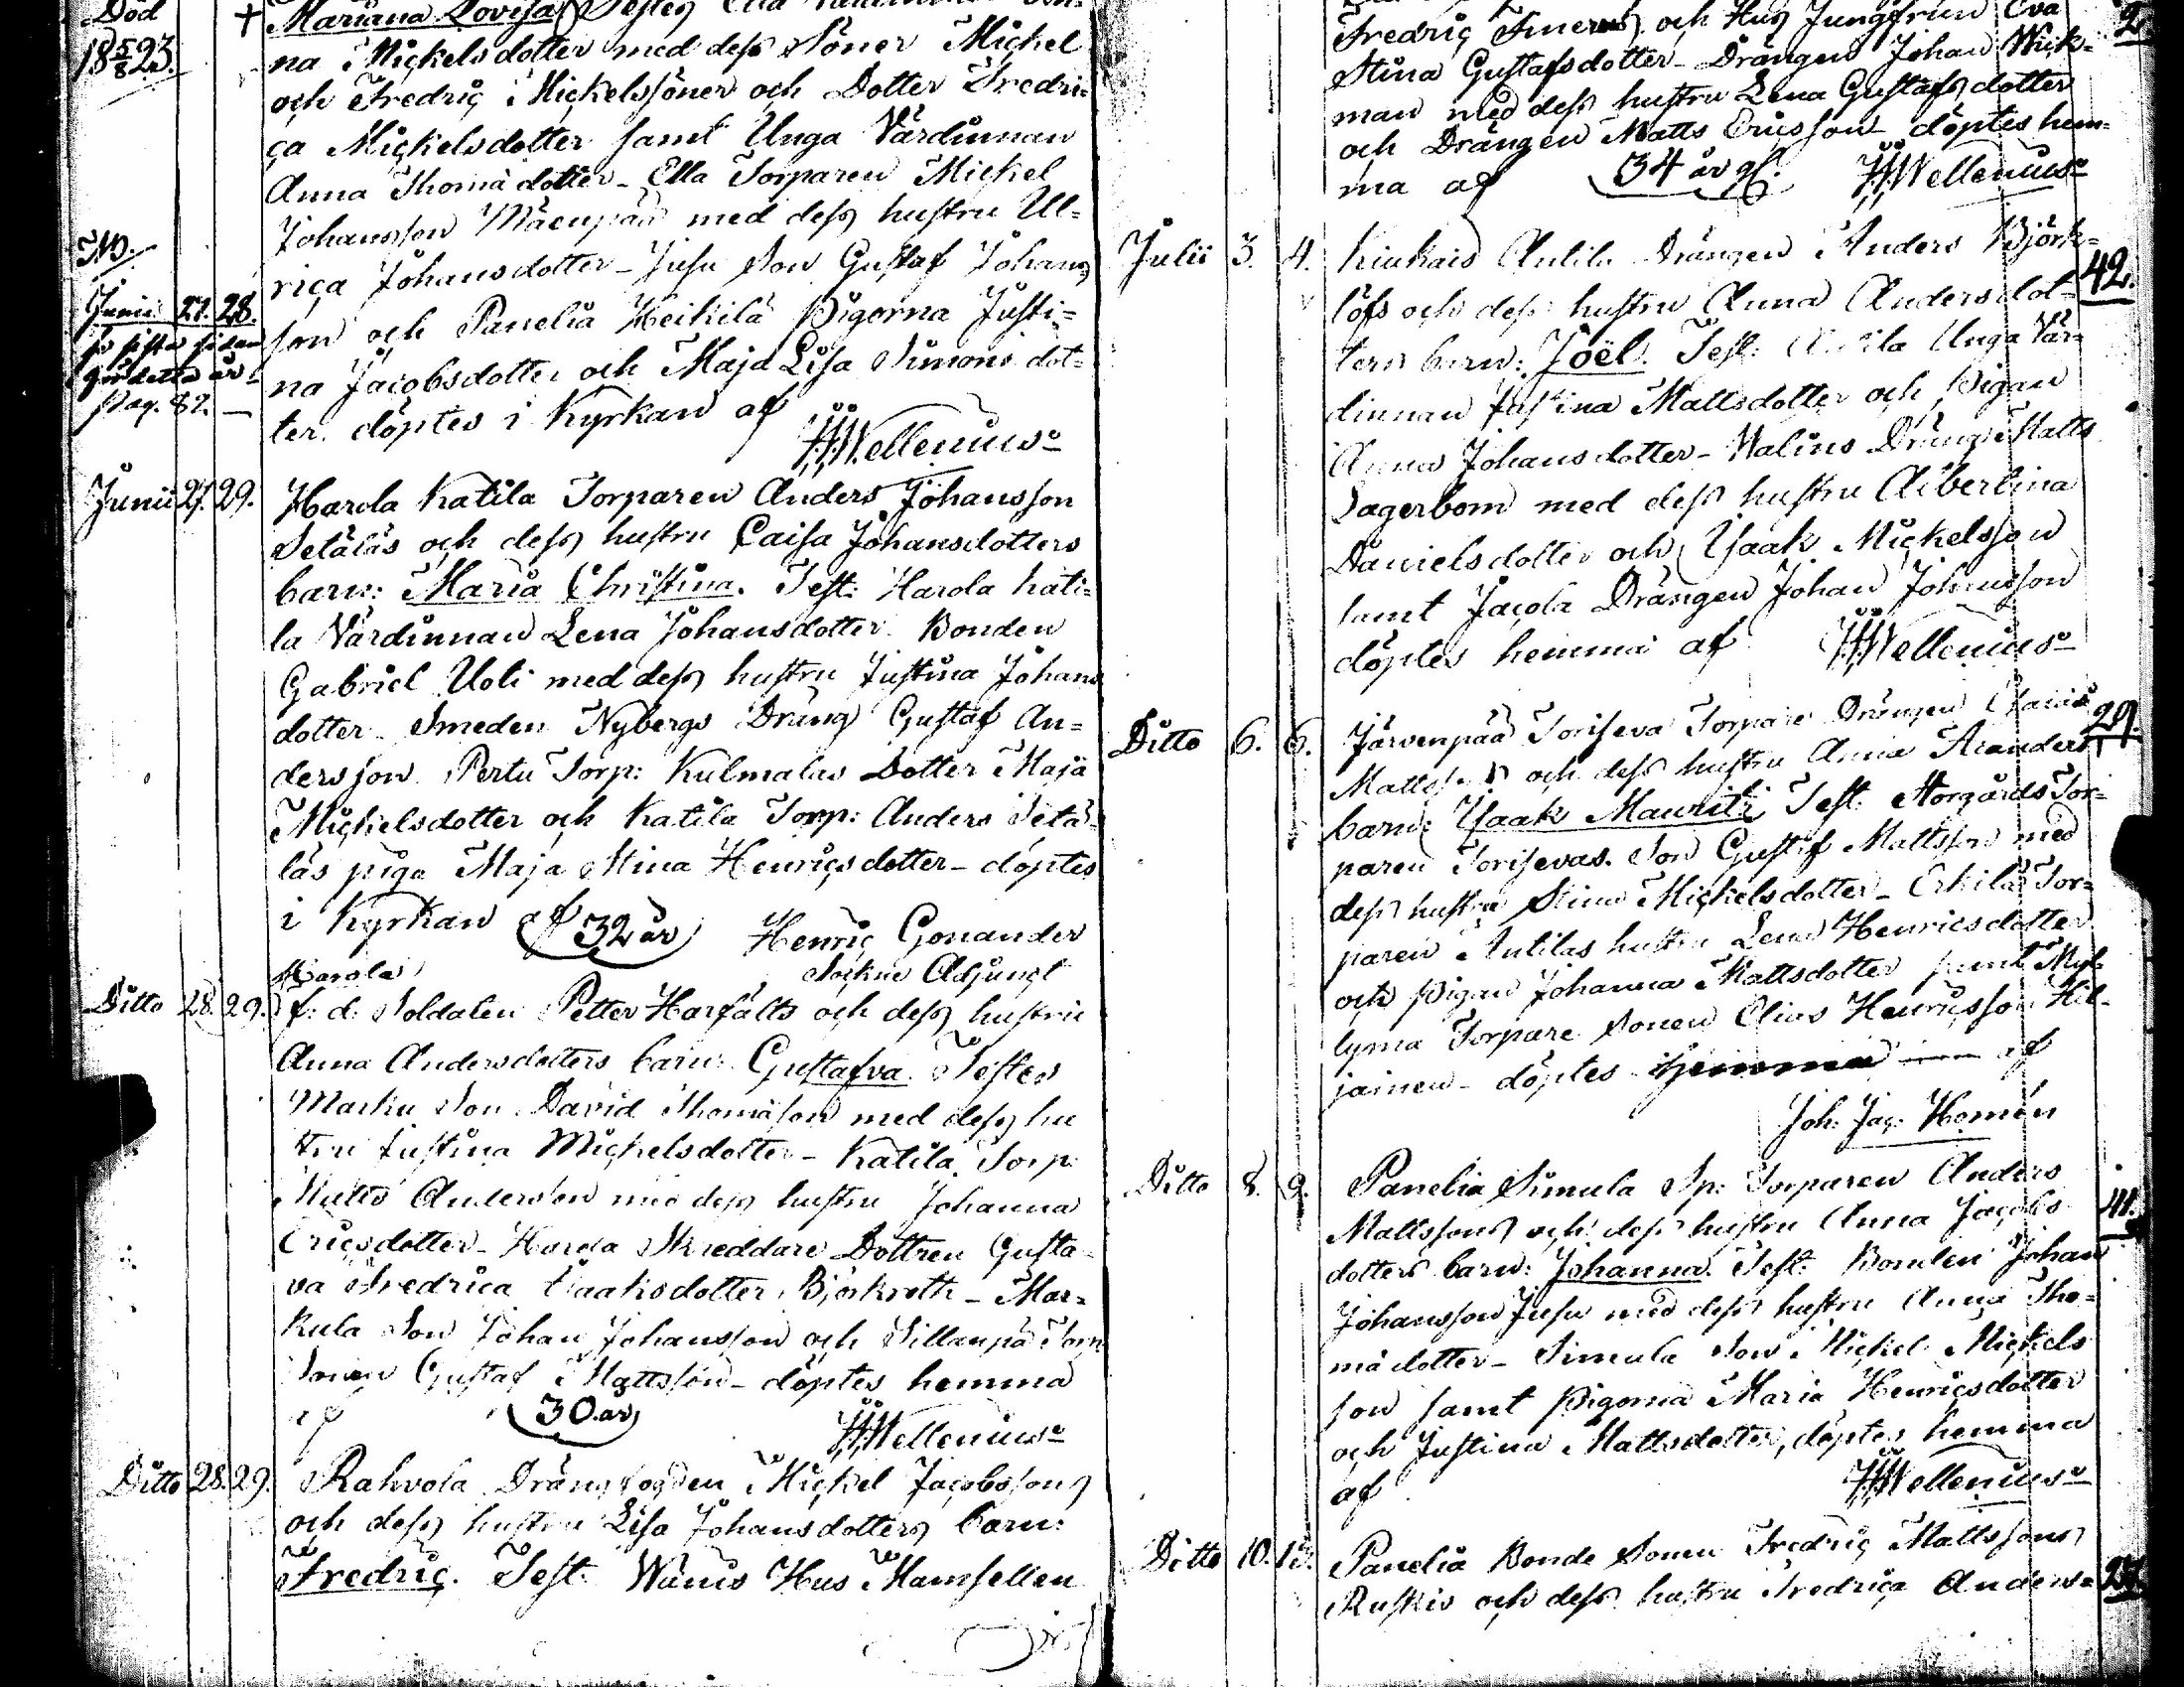 Död
18 5/8 23.
† Mariana Lovisa Testes Ella
na Mickelsdotter med dess Söner Mickel
och Fredric Mickelssöner och Dotter Fredri=
ca Mickelsdotter samt Unga Värdinnan
Anna Thomädotter - Ella Torparen Mickel
Johansson Mäenpää med dess hustru Ul=
rica Johansdotter - Jusu Son Gustaf Johans
son och Panelia Heikilä Pigorna Justi=
na Jacobsdotter och Maja Lisa Simonsdot=
ter. döptes i Kyrkan af
JHWellenius
NB.
Junii 27. 28.
pag. 82.
Junii 27. 29. Harola Katila Torparen Anders Johansson
Setäläs och dess hustru Caisa Johansdotters
barn: Maria Christina. Test: Harola Kati=
la Värdinnan Lena Johansdotter. Bonden
Gabriel Uoti med dess hustru Justina Johans
dotter. Smeden Nybergs Dräng Gustaf An=
dersson. Pertu Torp: Kulmalas Dotter Maja
Mickelsdotter och Katila Torp: Anders Setä=
läs piga Maja Stina Henricsdotter - döptes
i Kyrkan af 32 år Henric Gonander
Sockne Adjunct
Harola
Ditto 28. 29. f: d: Soldaten Petter Harfälts och dess hustru
Anna Andersdotters barn: Gustafva. Testes
Marku Son David Thomäson med dess hu
stru Justina Mickelsdotter - Katila Torp:
Matts Andersson med dess hustru Johanna
Ericsdotter - Harola Skreddare Dottren Gusta=
va Fredrica Isaaksdotter Björkroth - Mar=
kula Son Johan Johansson och Sillanpä Torp
Sonen Gustaf Mattsson - döptes hemma
af 30 år JHWellenius
Ditto 28. 29. Rahvola Drängfogden Mickel Jacobssons
och dess hustru Lisa Johansdotters barn:
Fredric. Test: Wänis Hus Mamsellen
Fredric och Hus Jungfrun Eva 2.
Stina Gustafsdotter - Drängen Johan Wick=
man med dess hustru Lena Gustafsdotter
och Drängen Matts Ericsson - döptes hem=
ma af 34 år gl. JHWellenius
Julii 3. 4. Kiukais Antila Drängen Anders Björk= 42.
löfs och dess hustru Anna Andersdot=
ters barn: Joël. Test: Antila Unga Vär=
dinnan Justina Mattsdotter och Pigan
Anna Johansdotter - Walins Dräng Matts
Lagerbom med dess hustru Albertina
Danielsdotter och Isaak Mickelsson
samt Jacola Drängen Johan Johansson
döptes hemma af JHWellenius
Ditto 6. 6. Järvenpää Toriseva Torpare Drängen 29.
Mattssons och dess hustru Anna Aranders
barn: Isaak Mauritz. Test: Storgårds Tor=
paren Torisevas Son Gustaf Mattsson med
dess hustru Stina Mickelsdotter - Erkilä Tor=
paren Antilas hustru Lena Henricsdotter
och Pigan Johanna Mattsdotter samt Myl=
lymä Torpare Sonen Elias Henricsson Hil=
jainen - döptes hemma af
Joh: Jac: Homén
Ditto 8. 9. Panelia Simula Sp: Torparen Anders
Mattssons och dess hustru Anna Jacobs 41.
dotters barn: Johanna. Test: Bonden Johan
Johansson Jusu med dess hustru Anna Tho=
mädotter - Simula Son Mickel Mickels
son samt Pigorna Maria Henricsdotter
och Justina Mattsdotter, döptes hemma
af JHWellenius
Ditto 10. 13. Panelia Bonde Sonen Fredric Mattssons
Ruskis och dess hustru Fredrica Anders= 27.